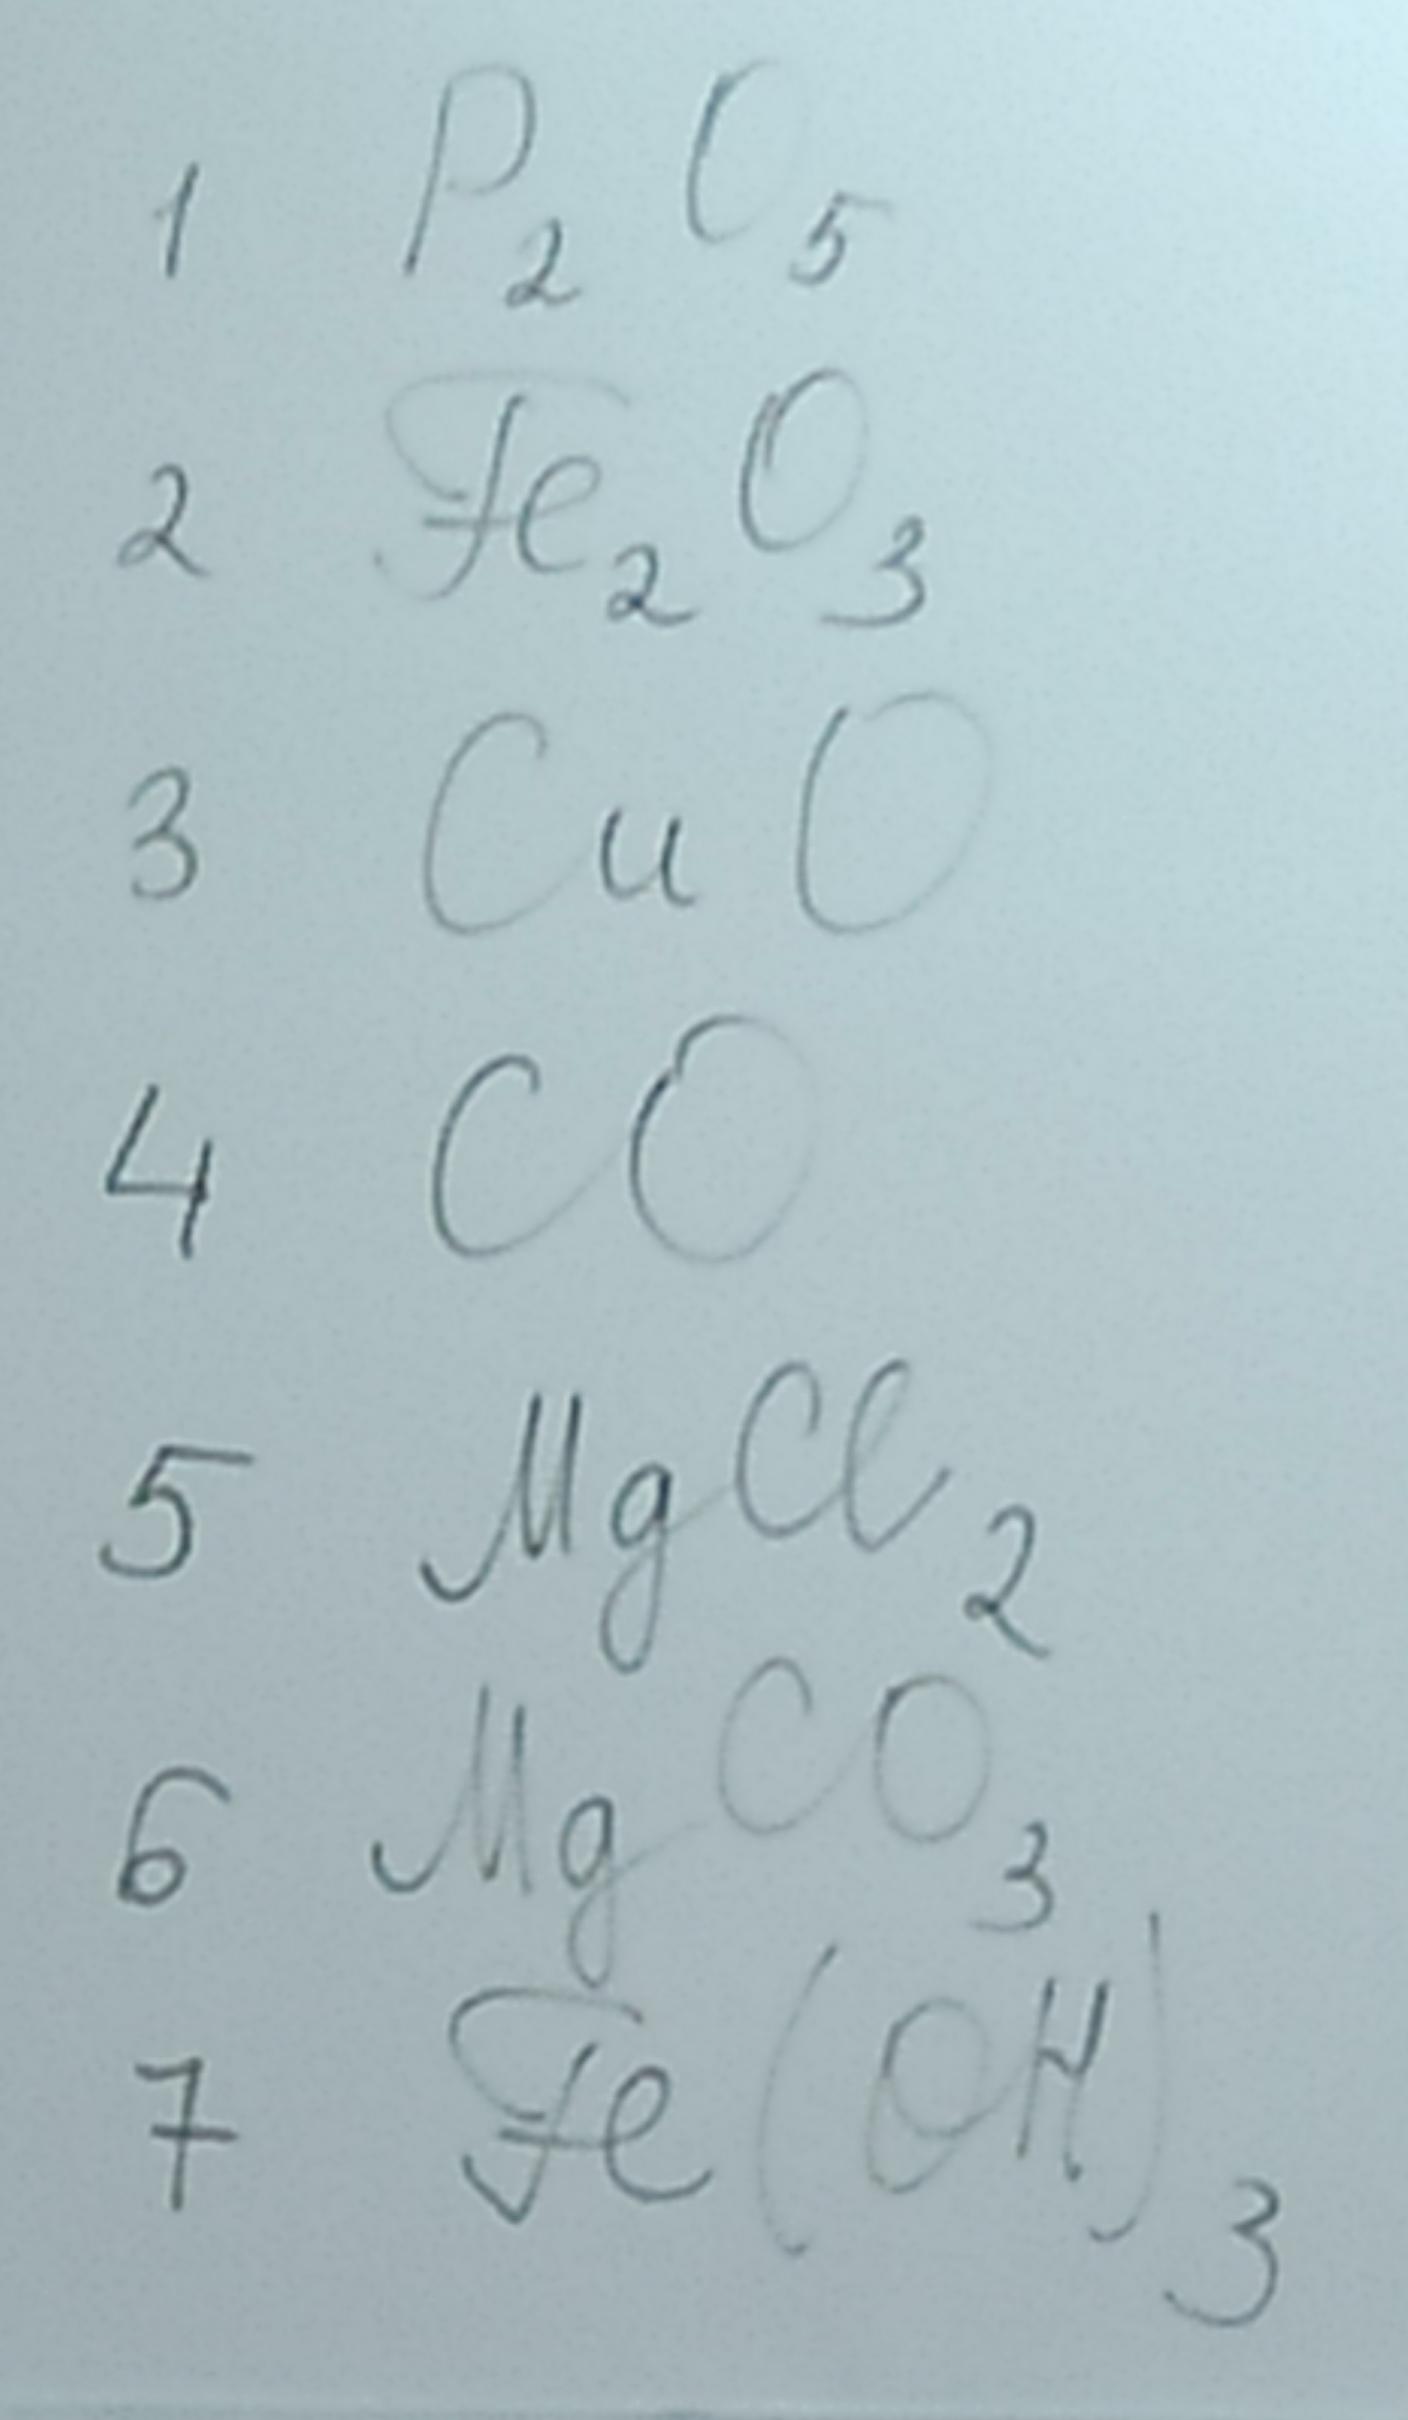 1 P₂O₅
2 Fe₂O₃
3 CuO
4 CO
5 MgCl₂
6 MgCO₃
7 Fe(OH)₃